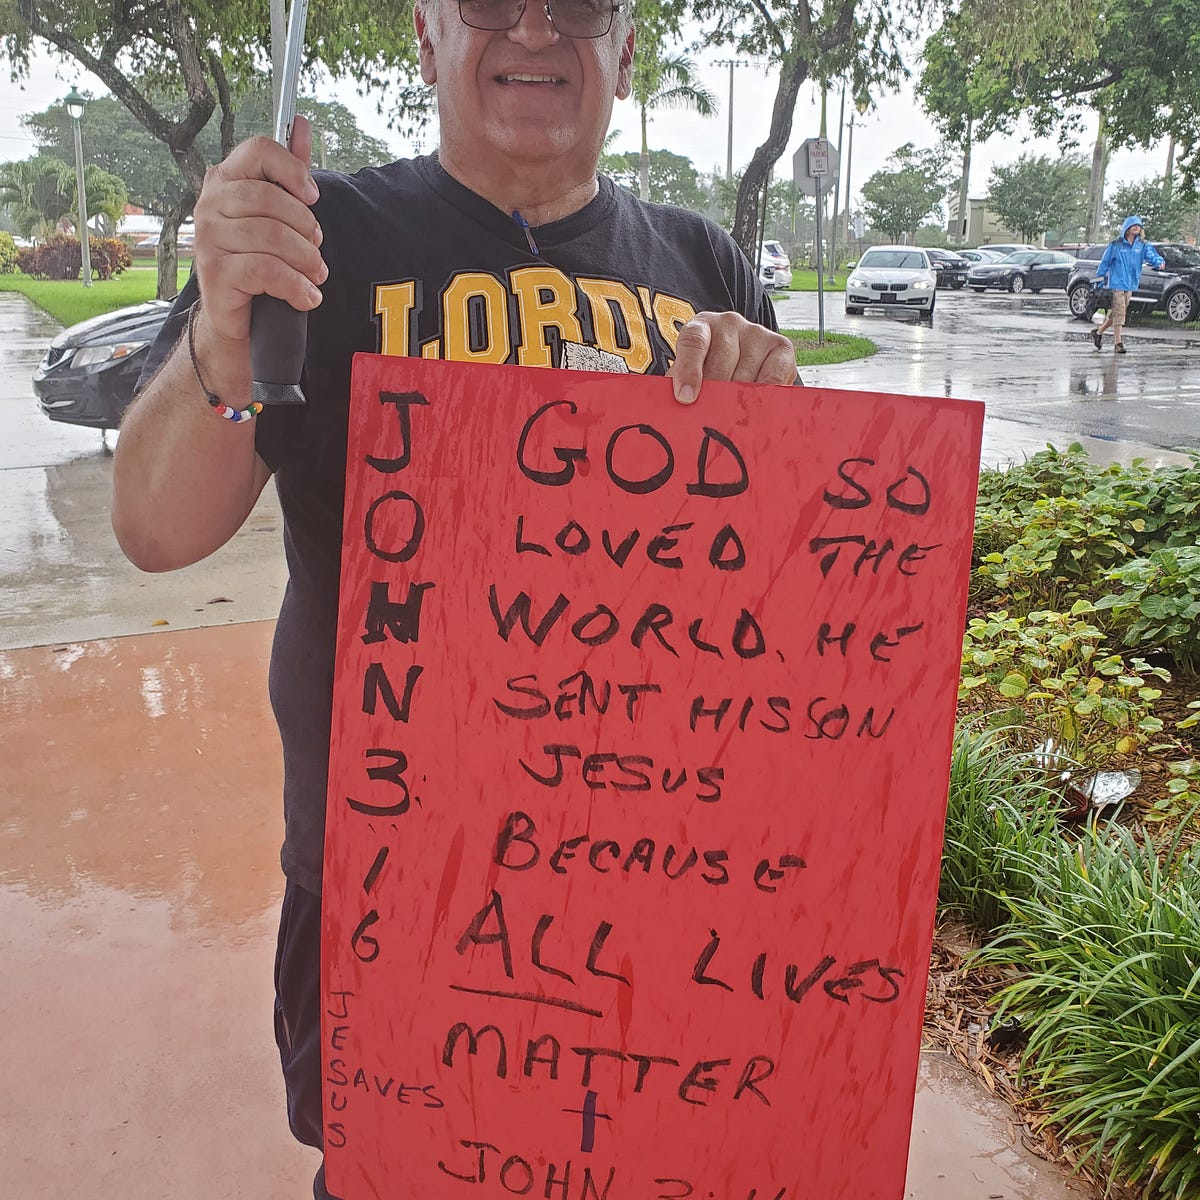 NO
PARKING
LORD'S
JOHN 3:16
GOD SO
LOVED THE
WORLD. HE
SENT HIS SON
JESUS
BECAUSE
ALL LIVES
MATTER
JESUS
SAVES
JOHN